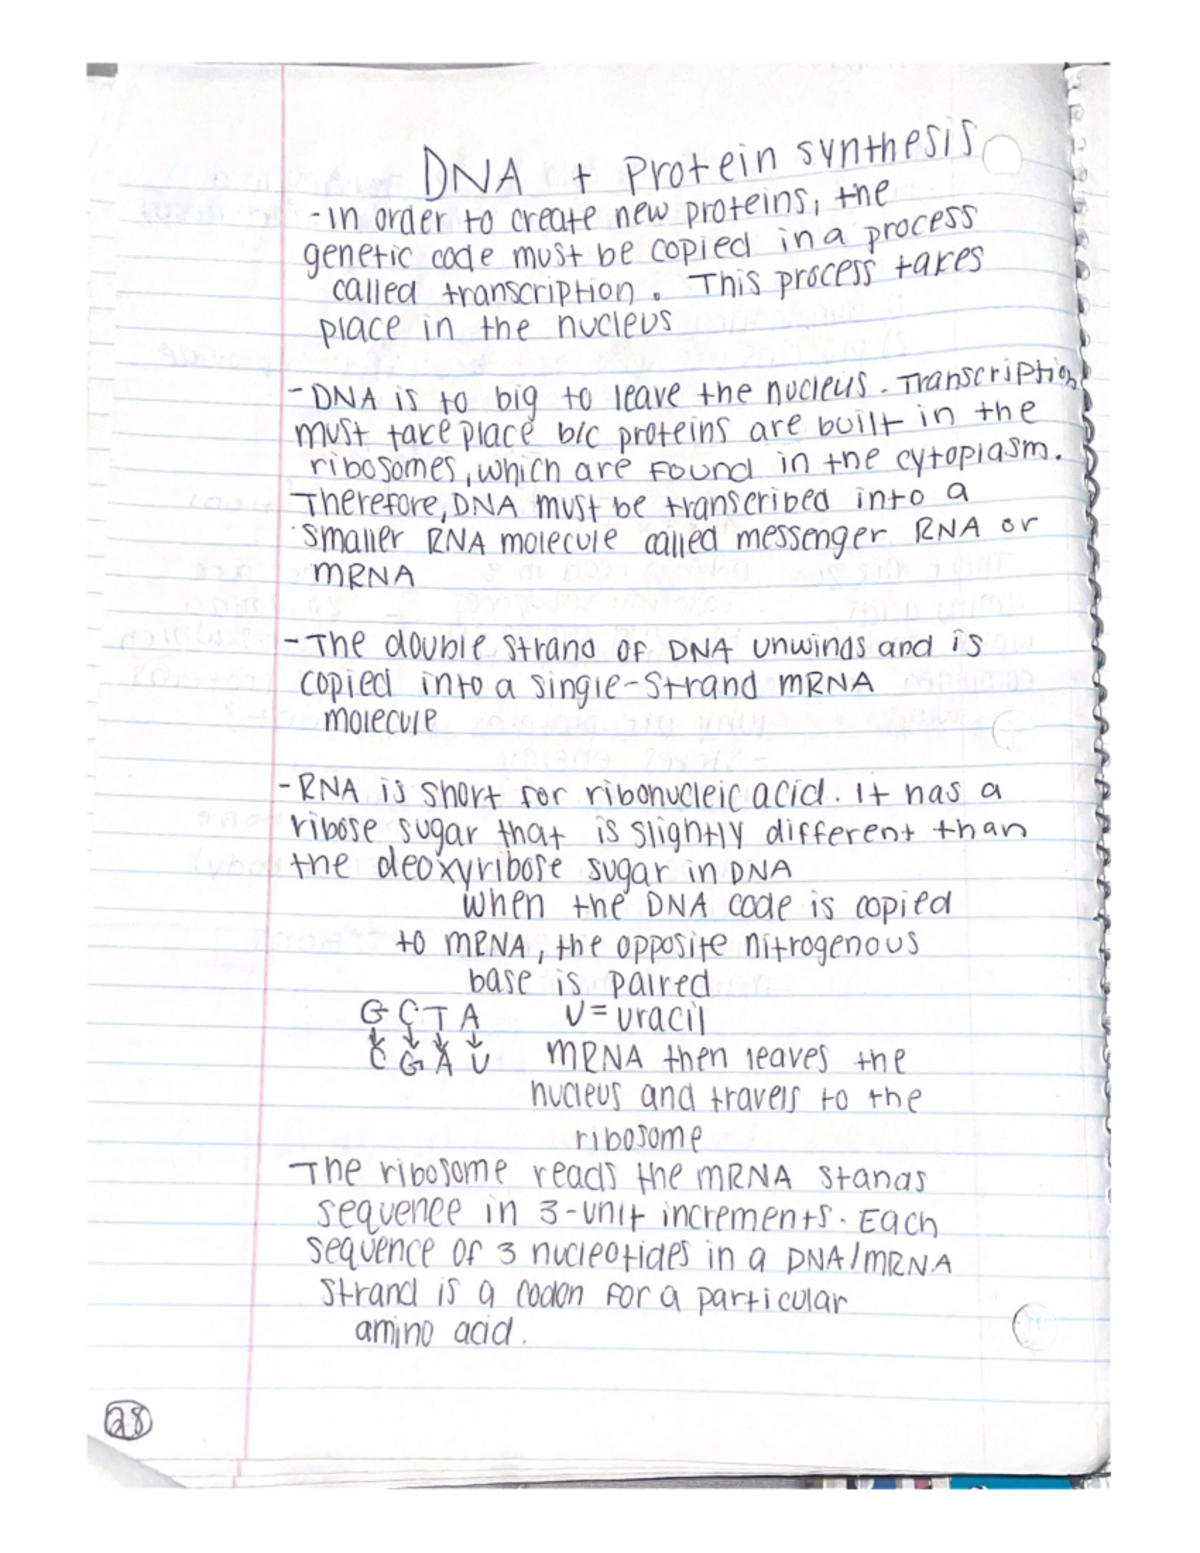 DNA + Protein synthesis
-in order to create new proteins, the
genetic code must be copied in a process
called transcription. This process takes
place in the nucleus
-DNA is to big to leave the nucleus. Transcription
must take place b/c proteins are built in the
ribosomes, which are found in the cytoplasm.
Therefore, DNA must be transcribed into a
smaller RNA molecule called messenger RNA or
mRNA
-The double strand of DNA unwinds and is
copied into a single-strand mRNA
molecule
-RNA is short for ribonucleic acid. it has a
ribose sugar that is slightly different than
the deoxyribose sugar in DNA
when the DNA code is copied
to mRNA, the opposite nitrogenous
base is paired
G C T A U = uracil
↓ ↓ ↓ ↓
C G A U mRNA then leaves the
nucleus and travels to the
ribosome
The ribosome reads the mRNA stands
sequence in 3-unit increments. Each
sequence of 3 nucleotides in a DNA/mRNA
strand is a codon for a particular
amino acid.
28